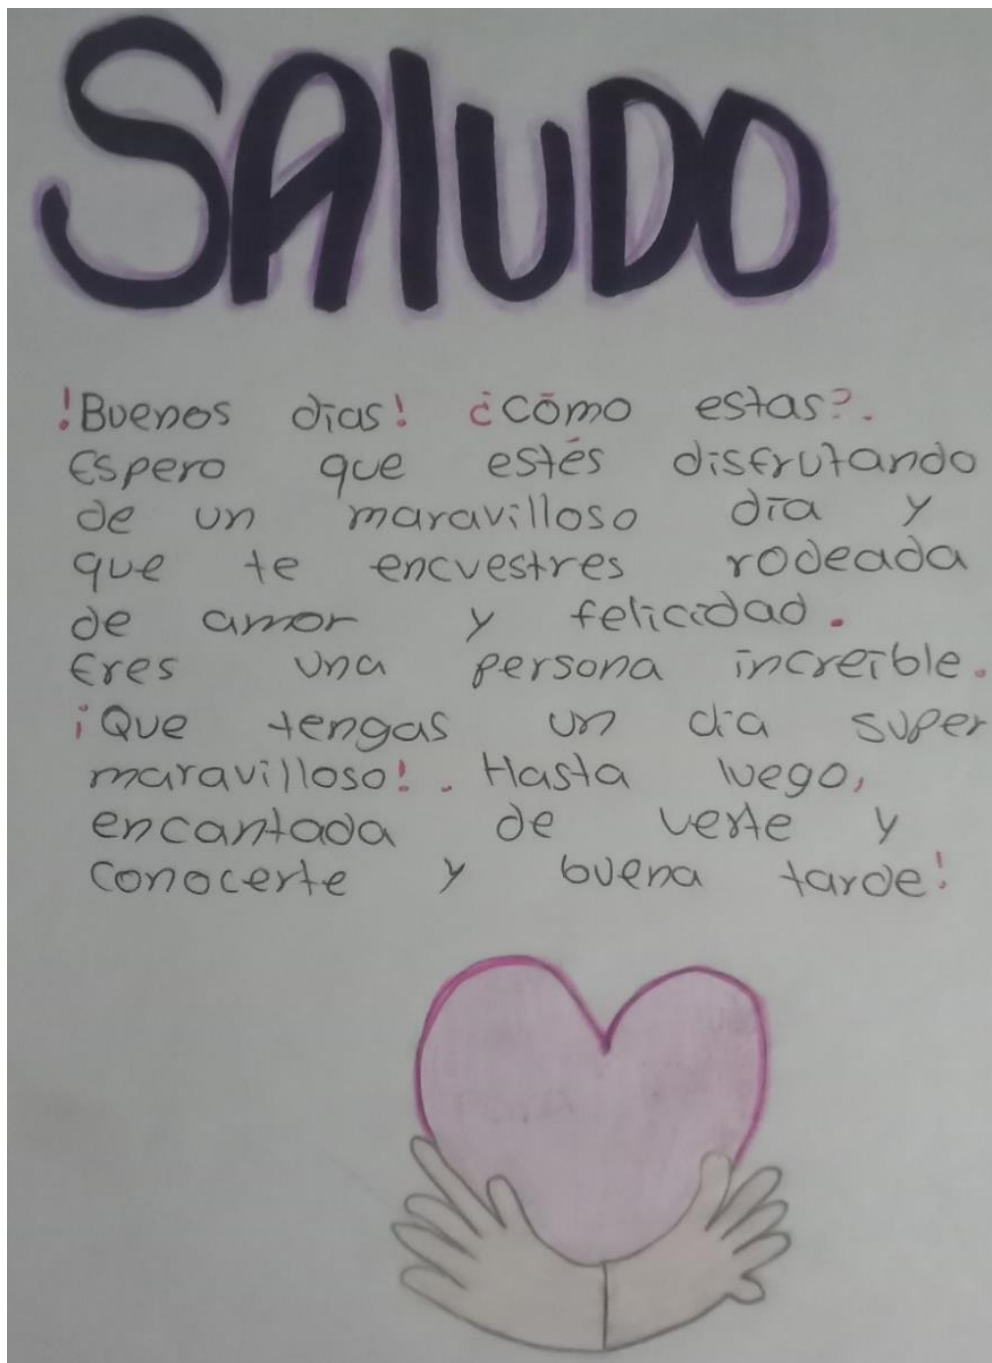 SAlUDO
!Buenos días! ¿cómo estas?.
Espero que estés disfrutando
de un maravilloso día y
que te encvestres rodeada
de amor y felicidad.
Eres una persona increíble.
¡Que tengas un dia super
maravilloso!. Hasta luego,
encantada de verte y
conocerte y buena tarde!